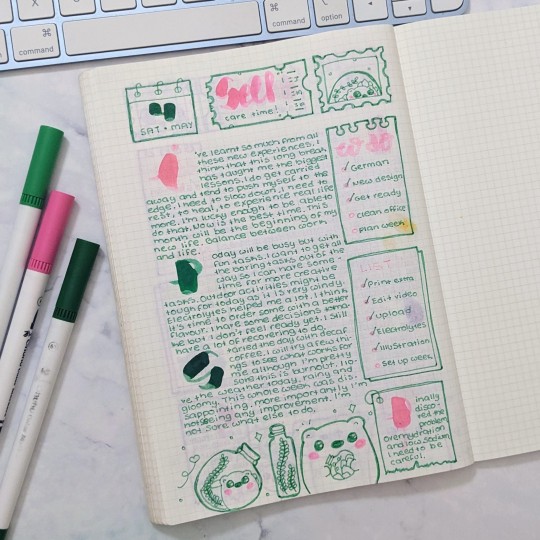 X
C
option
command
command
option
SAT • MAY
Self
care time!
've learnt so much from all
these new experiences, I
think that this long break
has taught me the biggest
lessons. I do get carried
away and tend to push myself to the
edge. I need to slow down, I need to
rest, to heal, to experience real life
more. I'm lucky enough to be able to
do that. Now is the best time. This
month will be the beginning of my
new life. Balance between work
and life.
oday will be busy but with
fun tasks. I want to get all
the boring tasks out of the
way so I can have some
time for more creative
tasks. Outdoor activities might be
tough for today as it is very windy.
Electrolytes helped me a lot, I think
it's time to order some with a better
flavour. I have some decisions to ma-
ke but I don't feel ready yet. I still
have a lot of recovering to do.
tarted the day with decaf
coffee. I will try a few thi-
ngs to see what works for
me although I'm pretty
sure this is burnout. Lo-
ve the weather today, rainy and
gloomy. This whole week was dis-
sappointing, more importantly I'm
not seeing any improvement. I'm
not sure what else to do.
to do
German
New design
Get ready
clean office
plan week
LIST
Print extra
Edit video
Upload
Electrolytes
Illustration
Set up week
inally
disco-
red the
problem
Dehydration
and low sodium
I need to be
careful.